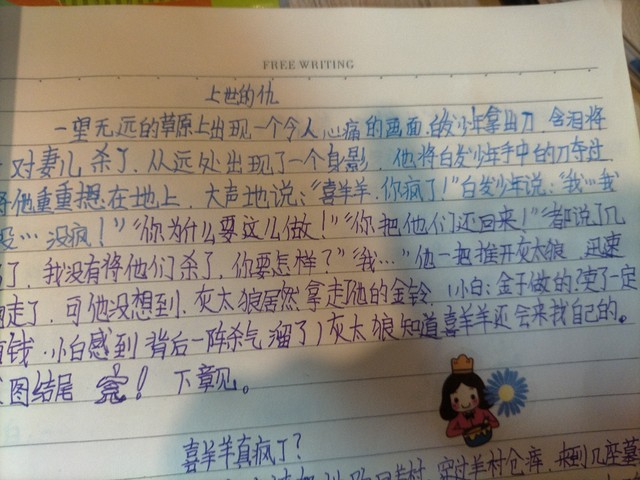 FREE WRITING
上世的仇
一望无远的草原上出现一个令人心痛的画面,白发少年拿出刀,含泪将
对妻儿杀了,从远处出现了一个身影,他将白发少年手中的刀夺过
将他重重摁在地上,大声地说:“喜羊羊,你疯了!”白发少年说:“我…我
没…没疯!”“你为什么要这么做!”“你把他们还回来!”“都说了几
了,我没有将他们杀了,你要怎样?”“我…”他一把推开灰太狼,迅速
走了,可他没想到,灰太狼居然拿走了他的金铃,(小白:金子做的,
钱,小白感到背后一阵杀气,溜了)灰太狼知道喜羊羊还会来找自己的。
图结尾 完! 下章见。
喜羊羊真疯了?
羊村,穿过羊村仓库,来到几座墓